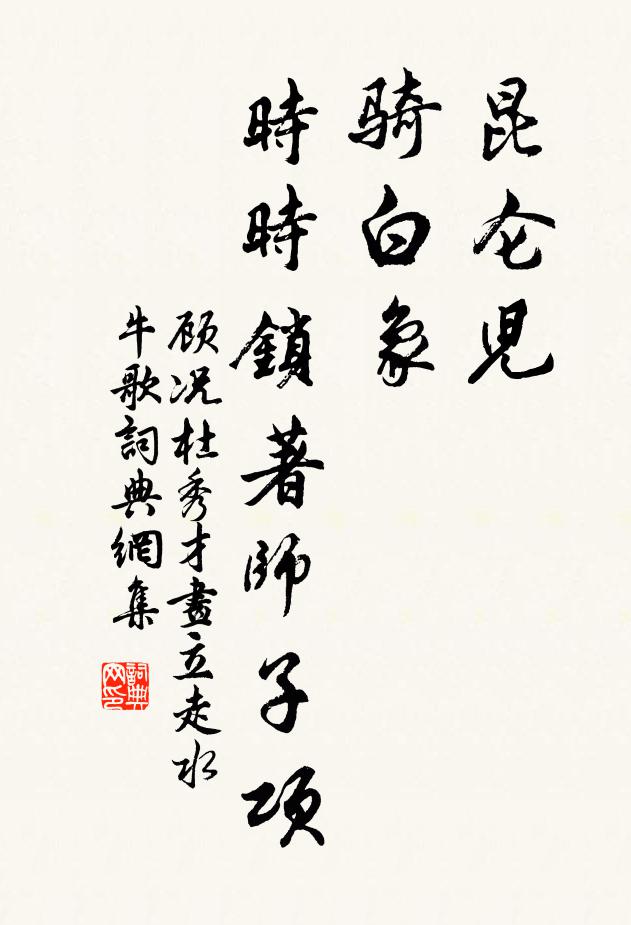 昆仑児
骑白象
時時鎖著師子项
顾况杜秀才畫立走水
牛歌詞典網集
詞典网印